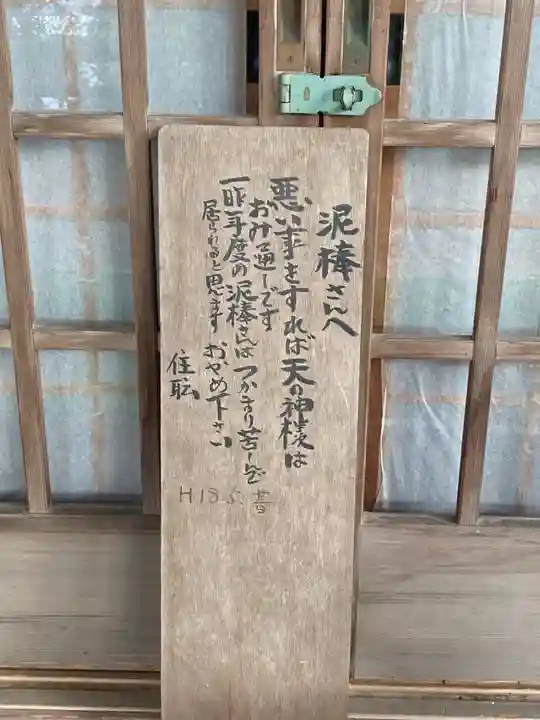 泥棒さんへ
悪い事をすれば天の神様は
おみ通しです
一昨年度の泥棒さんはつかまり苦しんで
居られると思います おやめ下さい
住職
H18.5.